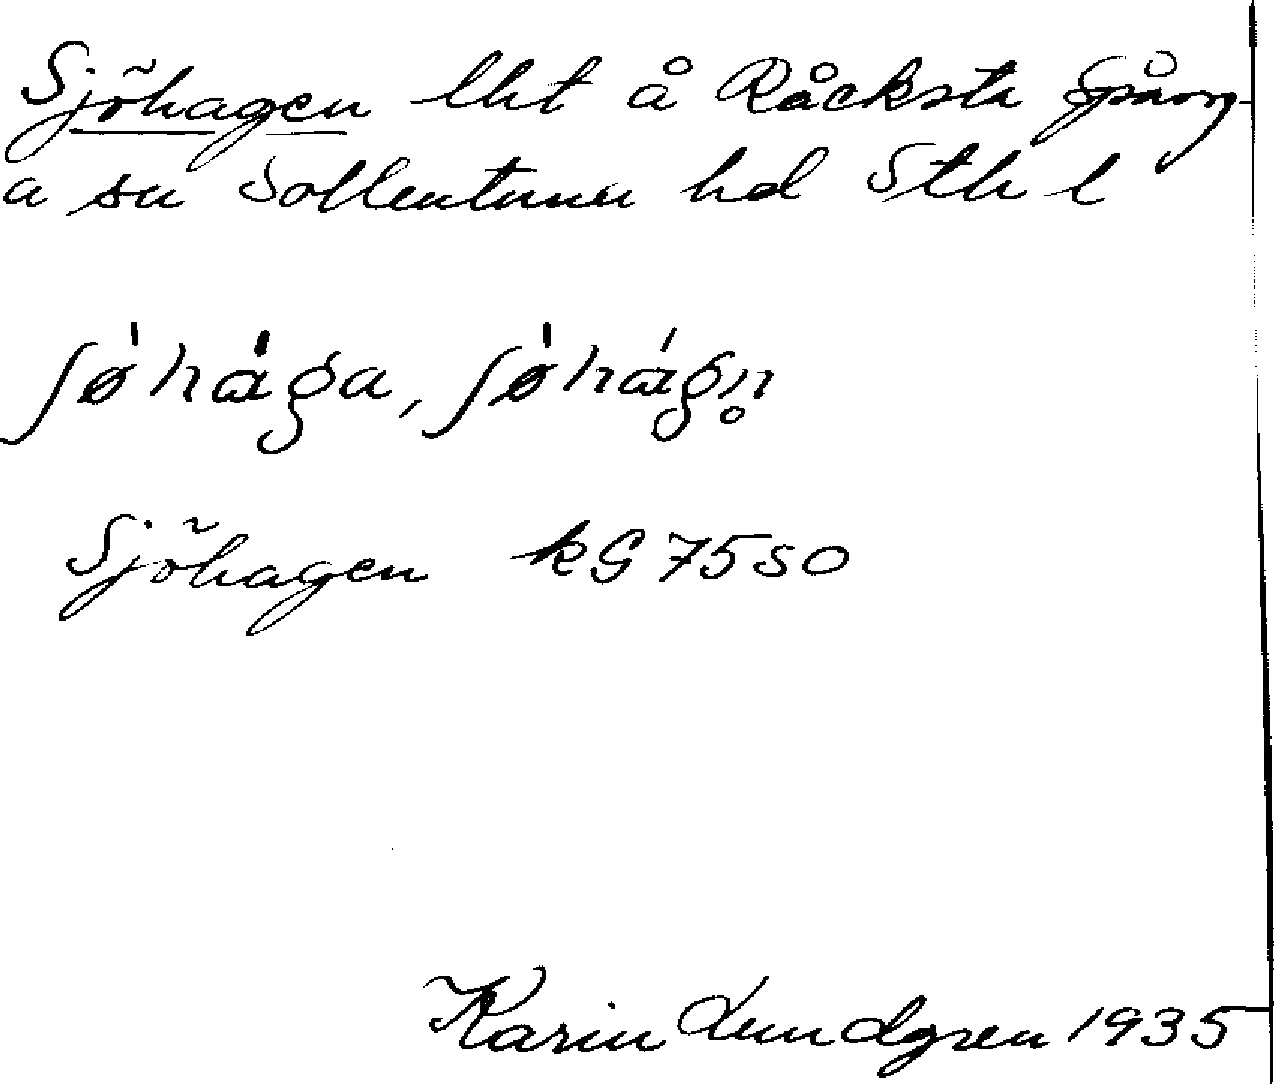 Sjöhagen lht å Råcksta Spång-
a sn Sollentuna hd Sth l
ʃø̍ hɑ̍ga, ʃø̍ hɑ́gn̥
Sjöhagen kG 75 SO
Karin Lundgren 1935